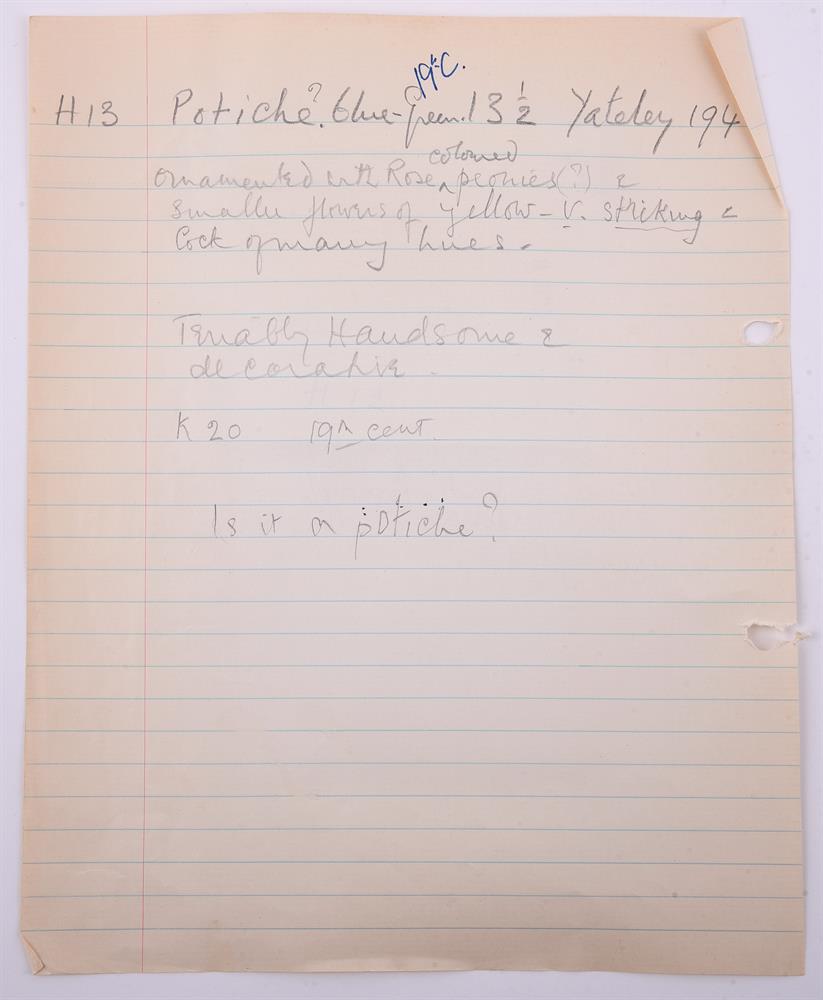 19th C.
H13 Potiche?. blue-green. 13 ½ Yateley 194
coloured
ornamented with Rose ^ peonies (?) &
smaller flowers of yellow - v. striking &
Cock of many hues.
Terribly Handsome &
decorative.
K 20 19th cent.
Is it a potiche?